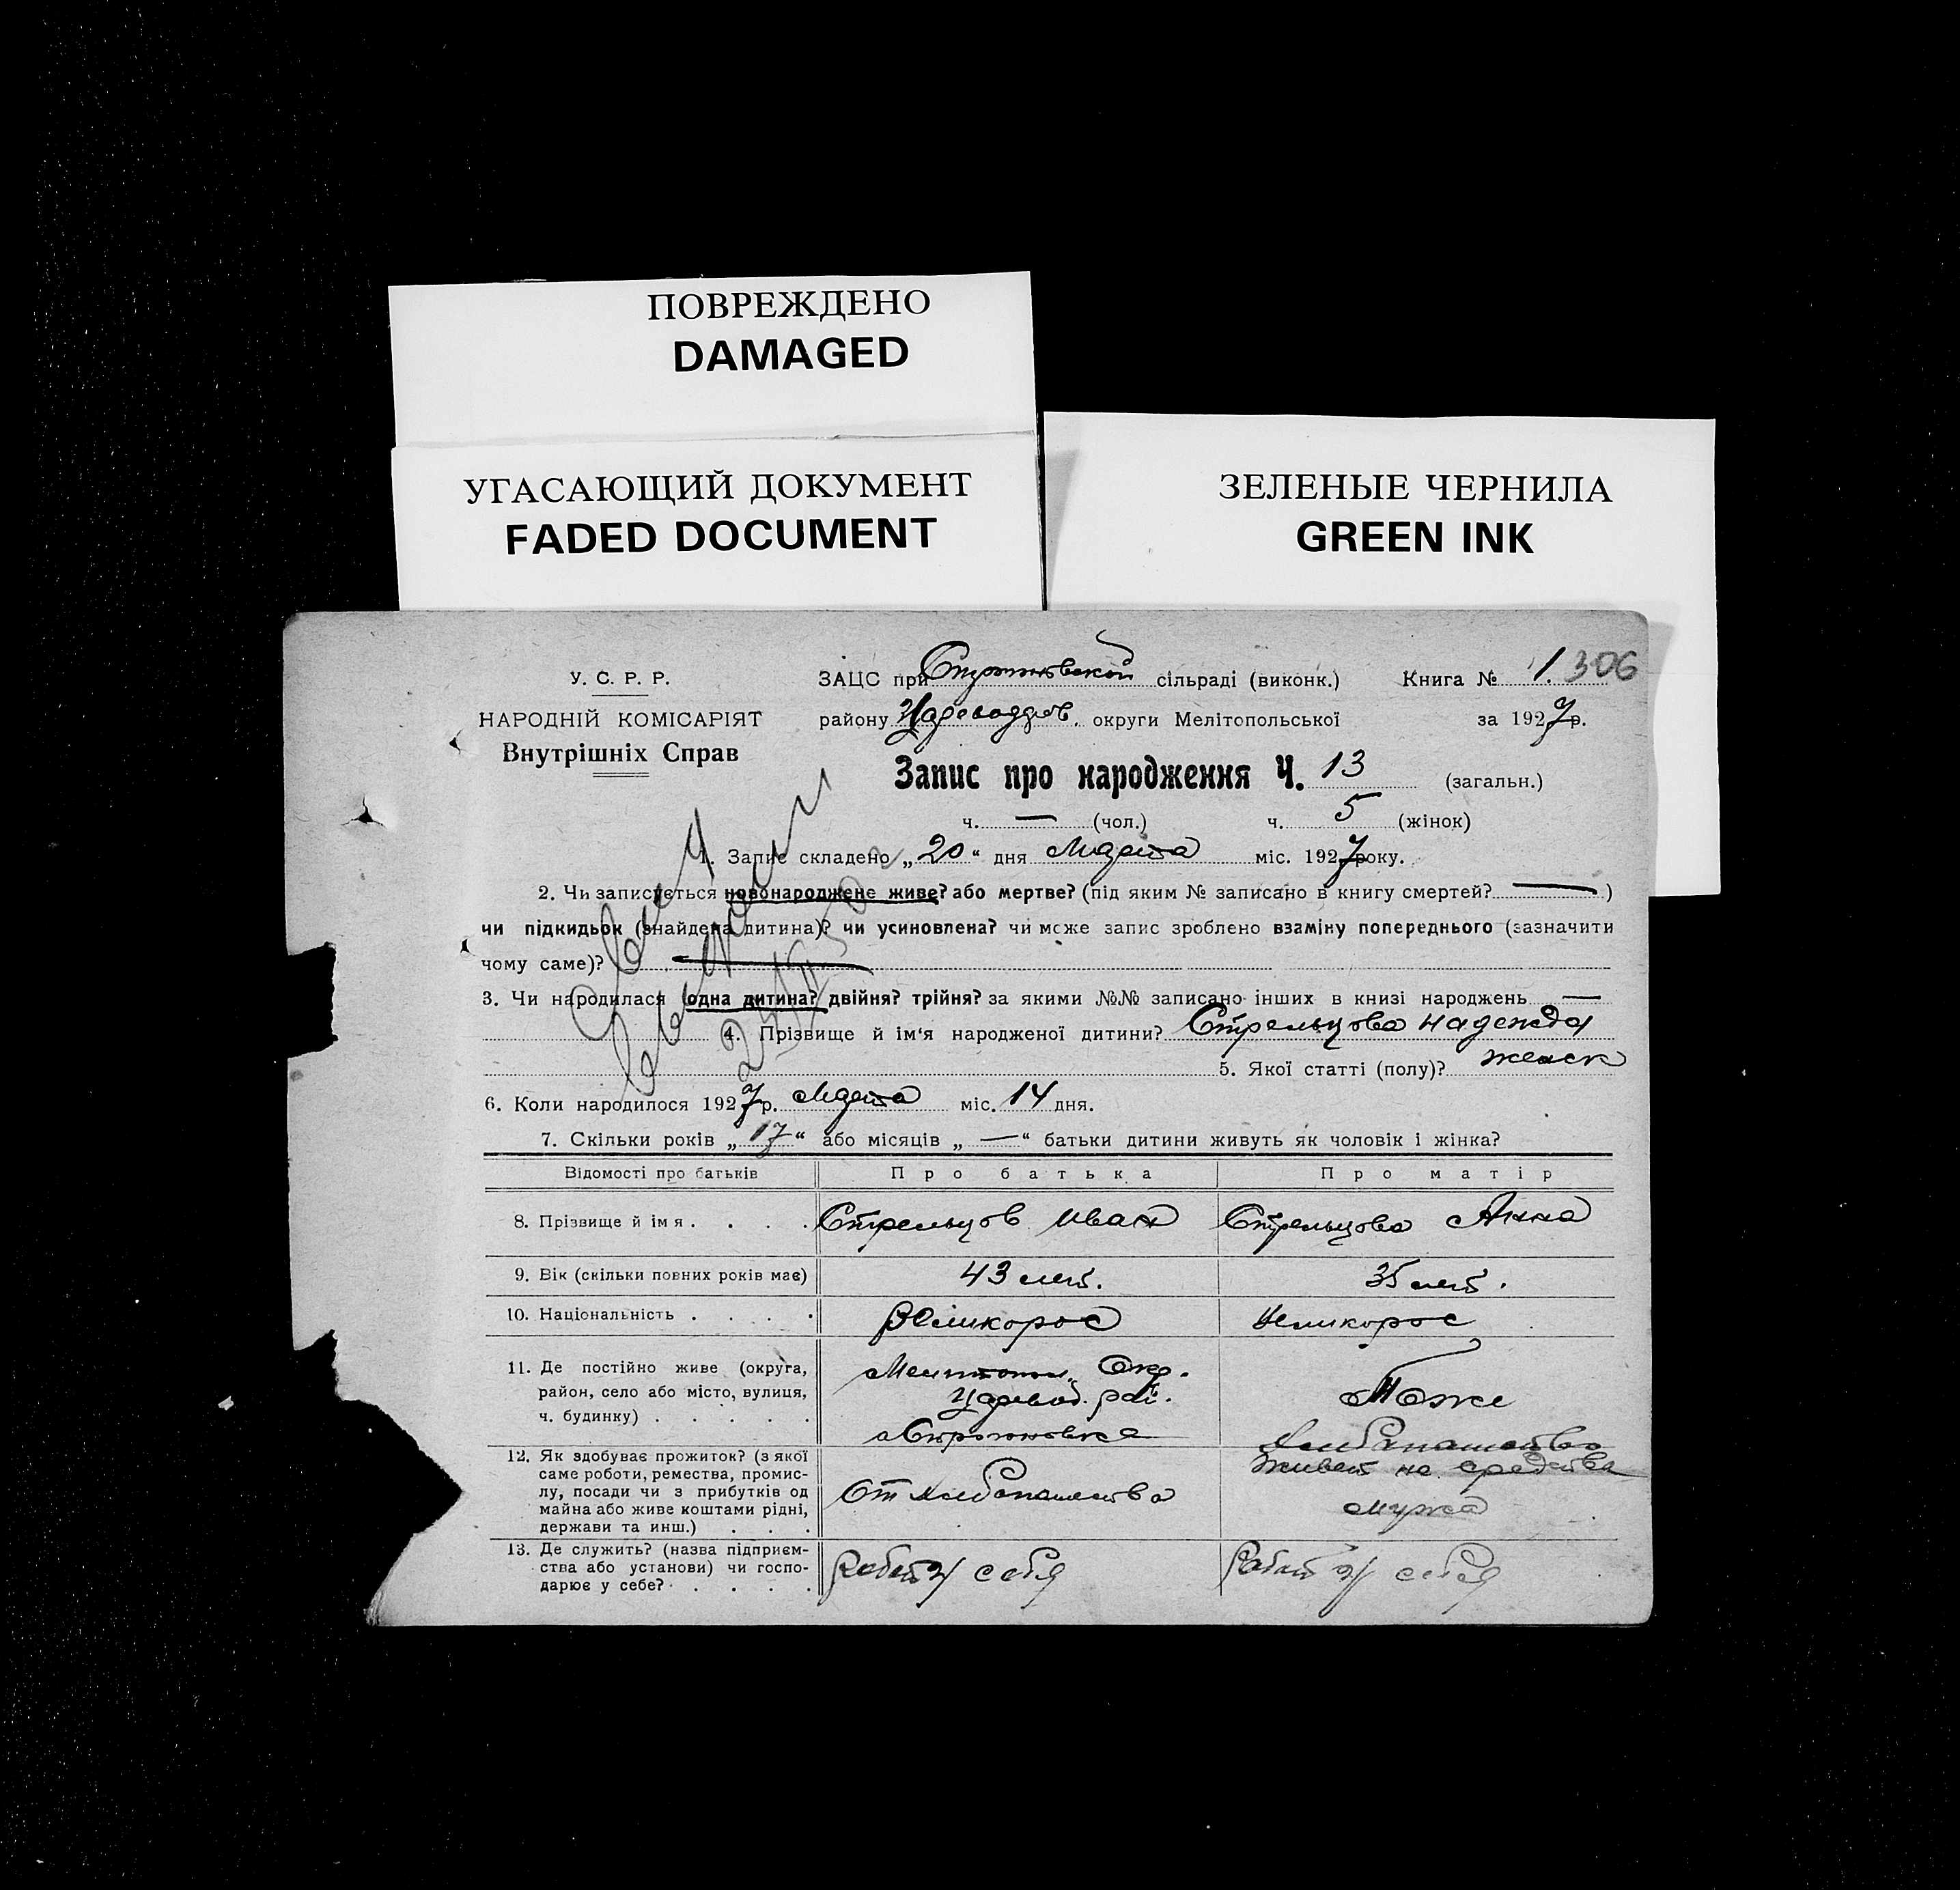 ПОВРЕЖДЕНО
DAMAGED
УГАСАЮЩИЙ ДОКУМЕНТ
FADED DOCUMENT
ЗЕЛЕНЫЕ ЧЕРНИЛА
GREEN INK
У. С. Р. Р.
НАРОДНІЙ КОМІСАРІЯТ
Внутрішніх Справ
ЗАЦС при сільраді (виконк.) Книга № 1. 306
району округи Мелітопольської за 1927 р.
Запис про народження Ч. 13 (загальн.)
ч. — (чол.) ч. 5 (жінок)
1. Запис складено „20“ дня Марта міс. 1927 року.
2. Чи записується новонароджене живе? або мертве? (під яким № записано в книгу смертей? — )
чи підкидьок (знайдена дитина)? чи усиновлена? чи може запис зроблено взаміну попереднього (зазначити
чому саме)?
3. Чи народилася одна дитина? двійня? трійня? за якими №№ записано інших в книзі народжень —
4. Прізвище й ім‘я народженої дитини? Стрельцова Надежда
5. Якої статті (полу)? женск
6. Коли народилося 1927 р. Марта міс. 14 дня.
7. Скільки років „17“ або місяців „—“ батьки дитини живуть як чоловік і жінка?
Відомості про батьків Про батька Про матір
8. Прізвище й імя . . . . Стрельцов Иван Стрельцова Анна
9. Вік (скільки повних років має) 43 лет. 35 лет.
10. Національність . . . . Великорос Великорос
11. Де постійно живе (округа,
район, село або місто, вулиця,
ч. будинку) . . . . .
Мелитопол. Окр.
Царевод. рай.
Тоже
12. Як здобуває прожиток? (з якої
саме роботи, ремества, промис-
лу, посади чи з прибутків од
майна або живе коштами рідні,
держави та инш.) . . .
От хлебопашества
Хлебопашество
Живет на средства
мужа
13. Де служить? (назва підприєм-
ства або установи) чи госпо-
дарює у себе? . . . .
Работ у себя Работ у себя